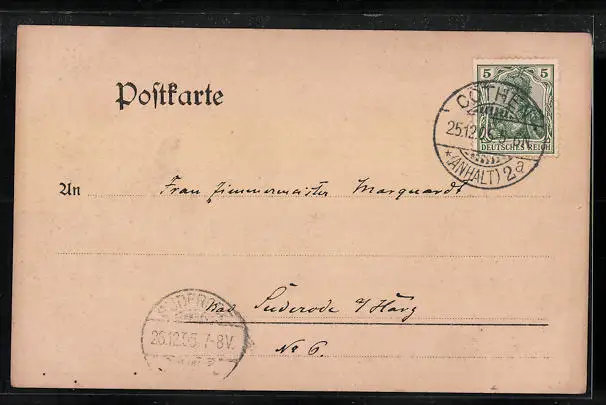 Postkarte
5 5
DEUTSCHES REICH
CÖTHEN
25.12.
*(ANHALT) 2a
An Frau Zimmermeister Marquardt
Bad Suderode a/Harz
No 6.
SUDERODE
26.12.05. 7-8V.